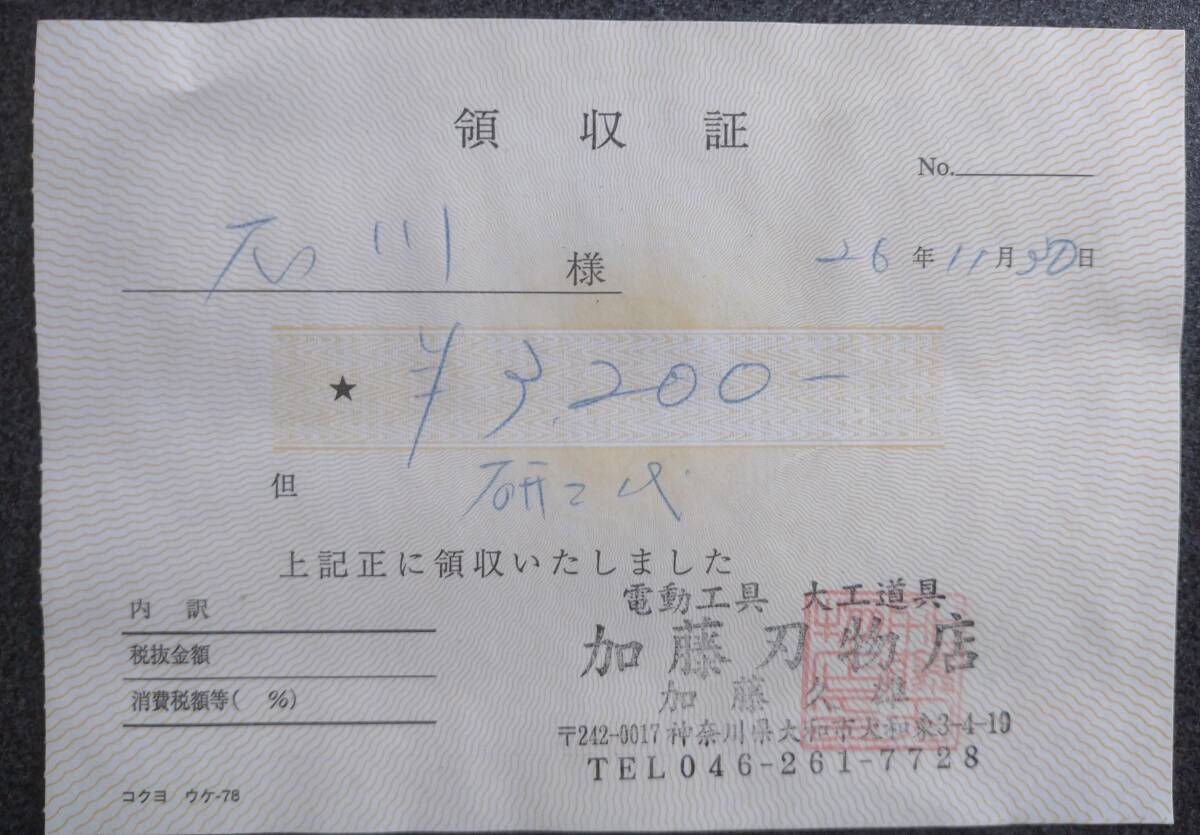 領 収 証
No.
石川 様
26 年 11 月 30 日
★ ¥3,200-
但 研ギ代
上記正に領収いたしました
内 訳
税抜金額
消費税額等( %)
電動工具 大工道具
加藤刃物店
加藤久雄
〒242-0017 神奈川県大和市大和東3-4-19
TEL046-261-7728
コクヨ ウケ-78